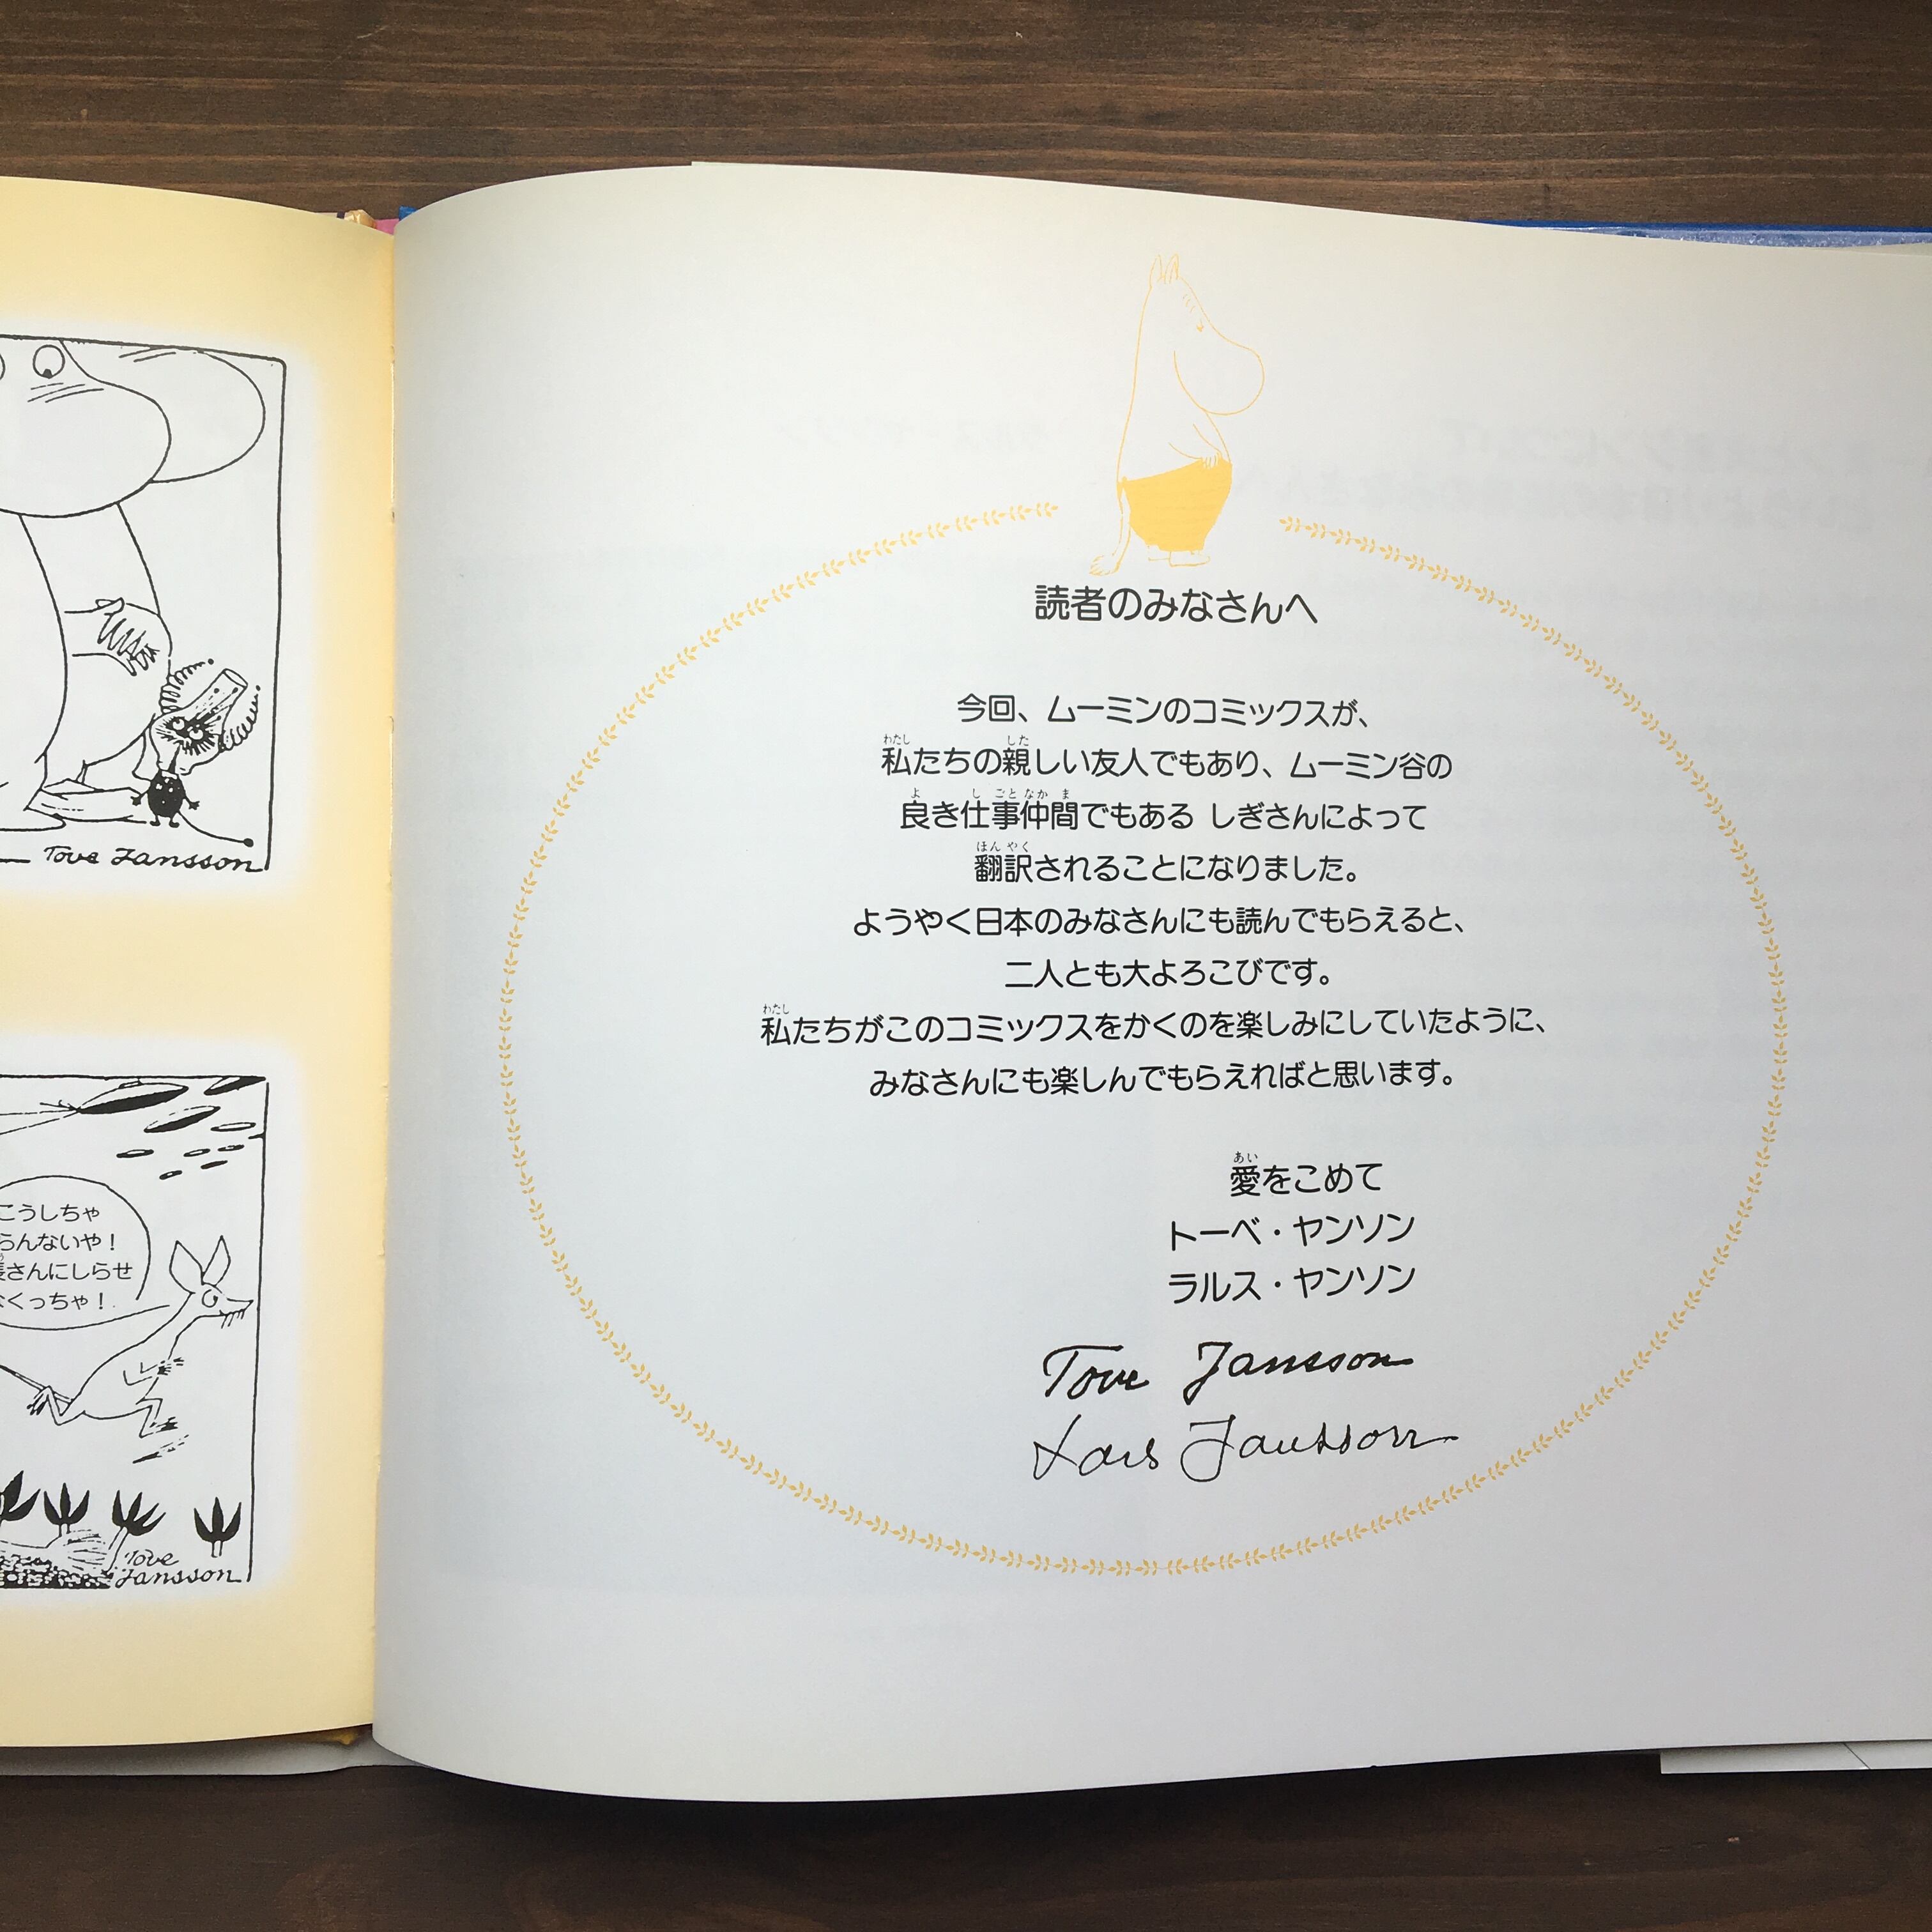 Tove Jansson
こうしちゃ
らんないや！
長さんにしらせ
なくっちゃ！
Tove
Jansson
読者のみなさんへ
今回、ムーミンのコミックスが、
私たちの親しい友人でもあり、ムーミン谷の
良き仕事仲間でもある しぎさんによって
翻訳されることになりました。
ようやく日本のみなさんにも読んでもらえると、
二人とも大よろこびです。
私たちがこのコミックスをかくのを楽しみにしていたように、
みなさんにも楽しんでもらえればと思います。
愛をこめて
トーベ・ヤンソン
ラルス・ヤンソン
Tove Jansson
Lars Jansson